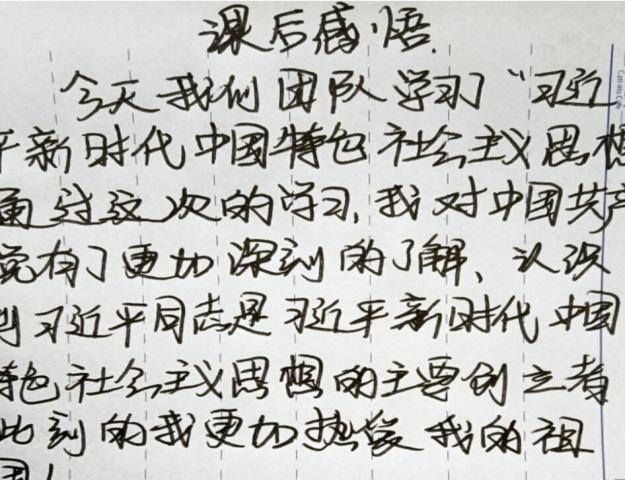 课后感悟.
今天我们团队学习“习近
平新时代中国特色社会主义思想
通过这次的学习,我对中国共产
党有了更加深刻的了解、认识
到习近平同志是习近平新时代中国
特色社会主义思想的主要创立者
此刻的我更加热爱我的祖
国!